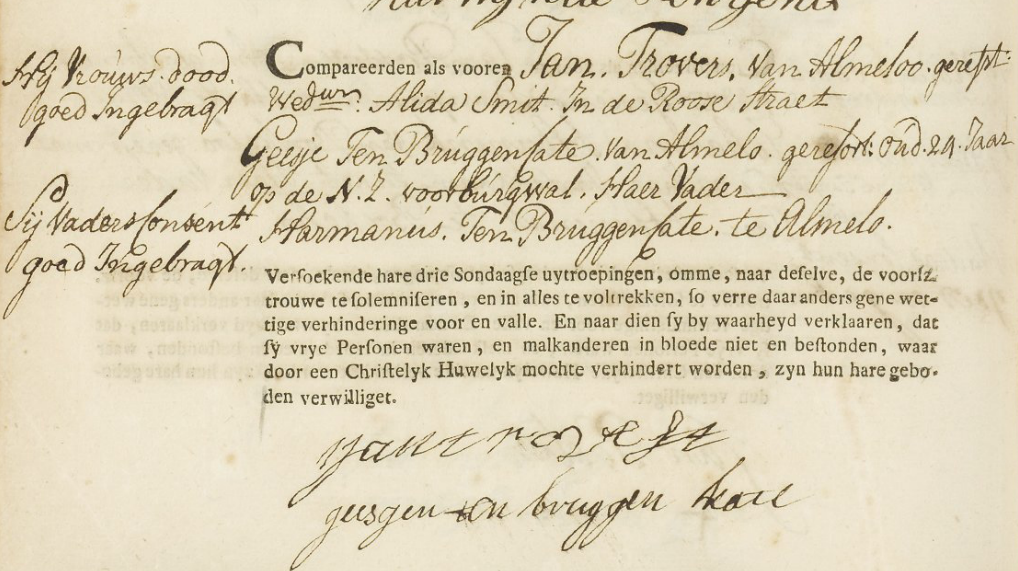 Hÿ Vrouws dood.
goed Ingebragt
Compareerden als vooren Jan. Trovers. Van Almeloo. gereft:
Wed:wn: Alida Smit. In de Roose straet
Geesje Ten Bruggensate. van Almelo. gerefort: oud. 24. Jaar
op de N.Z. voorburgwal. Haer Vader
Sÿ Vaders Consent
goed Ingebragt.
Harmanus. Ten Bruggensate. te Almelo.
Versoekende hare drie Sondaagse uytroepingen, omme, naar deselve, de voorsz.
trouwe te solemniseren, en in alles te voltrekken, so verre daar anders gene wet-
tige verhinderinge voor en valle. En naar dien sy by waarheyd verklaaren, dat
sÿ vrye Personen waren, en malkanderen in bloede niet en bestonden, waar
door een Christelyk Huwelyk mochte verhindert worden, zyn hun hare gebo-
den verwilliget.
geesgen ten bruggen